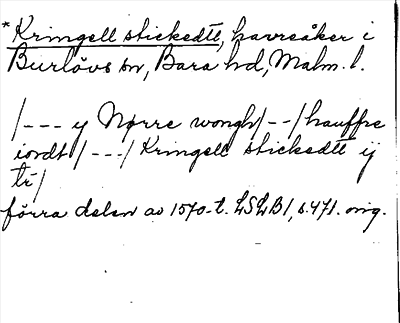 *Kringell stickedtt, havreåker i
Burlövs sn, Bara hd, Malm. l.
/--- y Nørre wongh/--/hauffre
iordt/---/Kringell stickedtt ij
tr/
förra delen av 1570-t. LSLB1, s. 471. orig.